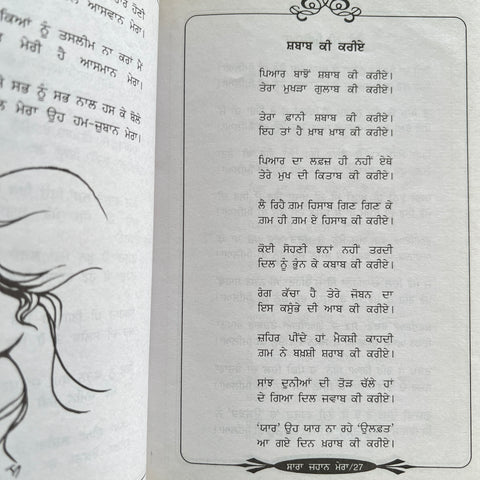 ਆਸਵਾਨ ਮੇਰਾ।
ਨੂੰ ਤਸਲੀਮ ਨਾ ਕਰਾਂ ਮੈਂ
ਮੇਰੀ ਹੈ ਆਸਮਾਨ ਮੇਰਾ।
ਸਭ ਨੂੰ ਸਭ ਨਾਲ ਹਸ ਕੇ ਬੋਲੇ
ਮੇਰਾ ਉਹ ਹਮ-ਜ਼ੁਬਾਨ ਮੇਰਾ।
ਸ਼ਬਾਬ ਕੀ ਕਰੀਏ
ਪਿਆਰ ਬਾਝੋਂ ਸ਼ਬਾਬ ਕੀ ਕਰੀਏ।
ਤੇਰਾ ਮੁਖੜਾ ਗੁਲਾਬ ਕੀ ਕਰੀਏ।
ਤੇਰਾ ਫ਼ਾਨੀ ਸ਼ਬਾਬ ਕੀ ਕਰੀਏ।
ਇਹ ਤਾਂ ਹੈ ਖ਼ਾਬ ਖ਼ਾਬ ਕੀ ਕਰੀਏ।
ਪਿਆਰ ਦਾ ਲਫ਼ਜ਼ ਹੀ ਨਹੀਂ ਏਥੇ
ਤੇਰੇ ਮੁਖ ਦੀ ਕਿਤਾਬ ਕੀ ਕਰੀਏ।
ਲੈ ਰਿਹੈ ਗ਼ਮ ਹਿਸਾਬ ਗਿਣ ਗਿਣ ਕੇ
ਗ਼ਮ ਹੀ ਗ਼ਮ ਏ ਹਿਸਾਬ ਕੀ ਕਰੀਏ।
ਕੋਈ ਸੋਹਣੀ ਝਨਾਂ ਨਹੀਂ ਤਰਦੀ
ਦਿਲ ਨੂੰ ਭੁੰਨ ਕੇ ਕਬਾਬ ਕੀ ਕਰੀਏ।
ਰੰਗ ਕੱਚਾ ਹੈ ਤੇਰੇ ਜੋਬਨ ਦਾ
ਇਸ ਕਸੁੰਭੇ ਦੀ ਆਬ ਕੀ ਕਰੀਏ।
ਜ਼ਹਿਰ ਪੀਂਦੇ ਹਾਂ ਮੈਕਸ਼ੀ ਕਾਹਦੀ
ਗ਼ਮ ਨੇ ਬਖ਼ਸ਼ੀ ਸ਼ਰਾਬ ਕੀ ਕਰੀਏ।
ਸਾਂਝ ਦੁਨੀਆਂ ਦੀ ਤੋੜ ਚੱਲੇ ਹਾਂ
ਦੇ ਗਿਆ ਦਿਲ ਜਵਾਬ ਕੀ ਕਰੀਏ।
'ਯਾਰ' ਉਹ ਯਾਰ ਨਾ ਰਹੇ 'ਉਲਫ਼ਤ'
ਆ ਗਏ ਦਿਨ ਖ਼ਰਾਬ ਕੀ ਕਰੀਏ।
ਸਾਰਾ ਜਹਾਨ ਮੇਰਾ/27